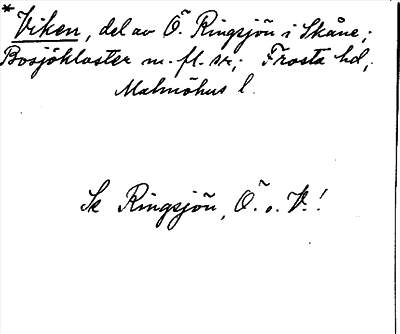 *Viken, del av Ö. Ringsjön i Skåne;
Bosjökloster m. fl. sn; Frosta hd,
Malmöhus l.
Se Ringsjön, Ö. o. V.!